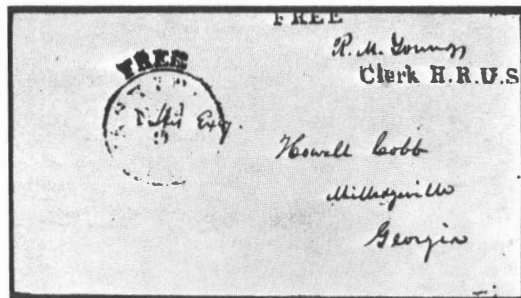 FREE
R. M. Young
Clerk H.R.U.S
FREE
Howell Cobb
Milledgeville
Georgia